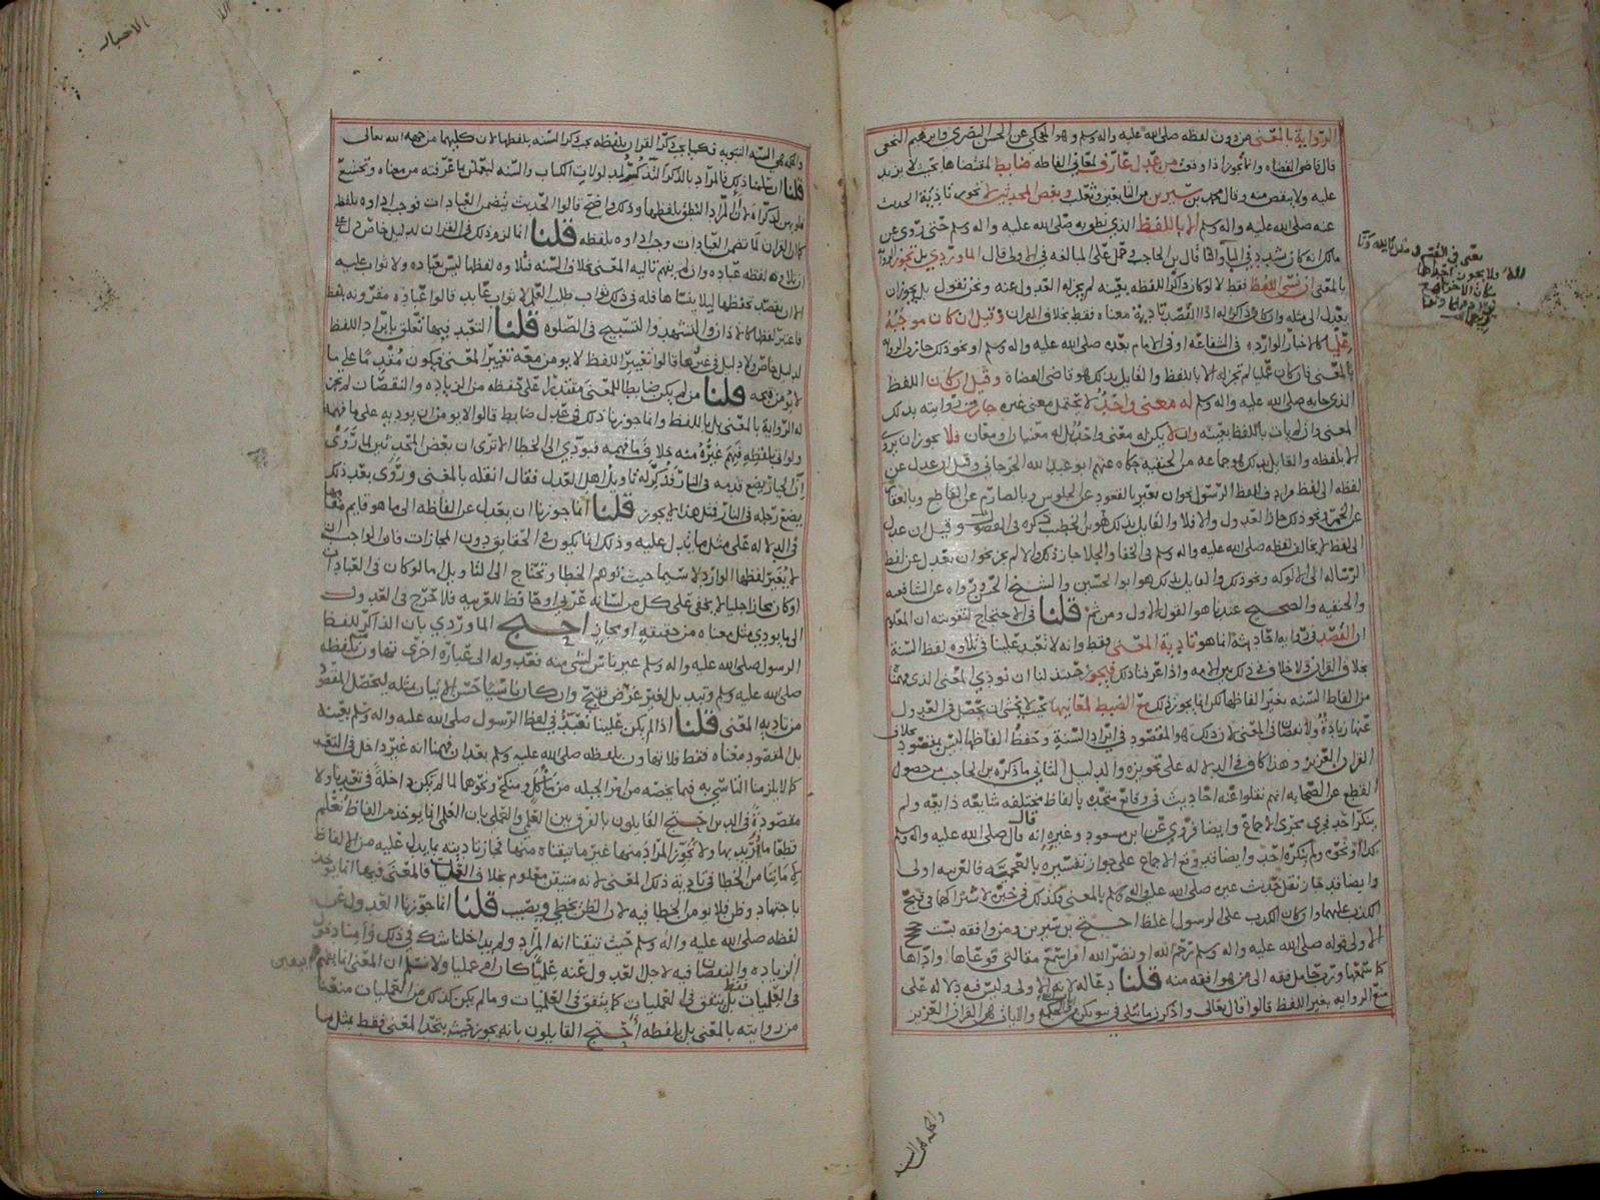 الرواية بالمعنى من دون لفظه صلى الله عليه واله وسلم وهو المحكي عن الحسن البصري وابرهيم النخعي
قال قاضي القضاه وانما يجوز اذا وقعت من عدل عارف لمعاني الفاظه ضابط لمقتضاها بحيث لا يزيد
عليه ولا ينقص منه وقال محمد بن سيرين من التابعين وثعلب وبعض المحدثين لا تجوز تاذية الحديث
عنه صلى الله عليه واله وسلم الا باللفظ الذي نطق به صلى الله عليه واله وسلم حتى روي عن
مالك انه كان يشدد في الباء والتاء قال بن الحاجب وحمل على المبالغه في الاولى قال الماوردي بل تجوز الرواية
بالمعنى ان نسي اللفظ فقط لا لو كان ذاكرا للفظه بعينه لم يجز له العدول عنه ونحن نقول بل يجوز ان
يعدل الى مثله وان كان ذاكرا له اذ القصد تاديه معناه فقط بخلاف القران وقيل ان كان موجبه
علميا كالاخبار الوارده في الشفاعه او في الامام بعده صلى الله عليه واله وسلم او نحو ذلك جازت الروايه
بالمعنى وان كان عمليا لم تجز له الا باللفظ والقايل بذلك هو قاضي القضاة وقيل ان كان اللفظ
الذي جا به صلى الله عليه واله وسلم له معنى واحد لا يحتمل معنى غيره جازت روايته بذلك
المعنى وان لم يات باللفظ بعينه وان لا يكن له معنى واحد بل له معنيان او معان فلا يجوز ان يروى
الا بلفظه والقايل بذلك هو جماعه من الحنفيه حكاه عنهم ابو عبد الله الجرجاني وقيل ان عدل عن
لفظه الى لفظ مرادف للفظ الرسول نحو ان يعبر بالقعود عن الجلوس وبالصارم عن القاطع وبالعقار
عن الخمر ونحو ذلك جاز العدول والا فلا والقايل بذلك هو بن الخطيب ذكره في وقيل ان عدل
الى لفظ لا يخالف لفظه صلى الله عليه واله وسلم في الخفا والجلا جاز ذلك والا لم يجز نحو ان يعدل عن لفظ
الرساله الى الالوكه ونحو ذلك والقايل بذلك هو ابو الحسين والشيخ الحسن ورواه عن الشافعيه
والحنفيه والصحيح عندنا هو القول الاول ومن ثم قلنا في الاحتجاج لتقويته ان المعلوم
ان القصد في روايه احاديثه انما هو تاديه المعنى فقط وانه لا تعبد علينا في تلاوه لفظ السنة
بخلاف القران ولا خلاف في ذلك بين الامه واذا عرفنا ذلك فيجوز حينئذ لنا ان نودي المعنى الذي فهمنا
من الفاظ السنه بغير الفاظها لكن انما يجوز ذلك مع الضبط لمعانيها بحيث لا يخشى ان يحصل في العدول
عنها زيادة ولا نقصان في المعنى لان ذلك هو المقصود في ايراد السنة وحفظ الفاظها ليس بمقصود بخلاف
القران العزيز وهذا كاف في الدلاله على تجويزه والدليل الثاني ما ذكره بن الحاجب من حصول
القطع عن الصحابه انهم نقلوا عنه احاديث في وقايع متحده بالفاظ مختلفه شايعه ذايعه ولم
ينكر احد فجرى مجرى الاجماع وايضا فروي عن ابن مسعود وغيره انه قال قال صلى الله عليه واله وسلم
كذا او نحوه ولم ينكره احد وايضا قد وقع الاجماع على جواز تفسيره بالعجميه فالعربيه اولى
وايضا قد جاز نقل حديث غيره صلى الله عليه واله وسلم بالمعنى فكذلك في خبره لاشتراكهما في قبح
الكذب عليهما وان كان الكذب على الرسول اغلظ احتج بن سيرين ومن وافقه بست حجج
الاولى قوله صلى الله عليه واله وسلم ترحم الله او نضر الله امرا سمع مقالتي فوعاها واداها
كما سمعها ورب حامل فقه الى من هو افقه منه قلنا دعا له لانه الاولى وليس فيه دلاله على
منع الروايه بغير اللفظ قالوا قال تعالى واذكرن ما يتلى في بيوتكن والايات هي القران العزيز
يعني في القسم
فلا يجوز اخذها
والحكمه هي السنه
والحكمه هي السنه النبويه فكما يجب ذكر القران بلفظه يجب ذكر السنه بلفظها لان كليهما من جهه الله تعالى
قلنا ان سلمنا ذلك فالمراد بالذكر التذكر لمدلولات الكتاب والسنه ليعقلن ما عرفنه من معناه وتخشع
قلوبهن لذكراه لا ان المراد النطق بلفظها وذلك واضح قالوا الحديث يتضمن العبادات فوجب اداوه بلفظه
كما ان القران لما تضمن العبادات وجب اداوه بلفظه قلنا انما لزم ذلك في القران لدليل خاص دل على
ان تلاوه لفظه عباده وان لم يفهم تاليه المعنى بخلاف السنه فتلاوه لفظها ليس بعباده ولا ثواب عليه
الا ان يقصد تحفظها ليلا ينساها فله في ذلك ثواب طلب العلم لا ثواب عابد قالوا عباده مقرونه بلفظ
فاعتبر لفظها كالاذان والتشهد والتسبيح في الصلوه قلنا التعبد فيها تعلق بايراد اللفظ
لدليل خاص ولا دليل في غيرها قالوا تغيير اللفظ لا يومن معه تغيير المعنى فيكون مقدما على ما
لا يومن قبحه قلنا من لم يكن ضابطا للمعنى مقتدرا على حفظه من الزياده والنقصان لم يجز
له الروايه بالمعنى بل باللفظ وانما جوزنا ذلك في عدل ضابط قالوا لا يومن ان يوديه على ما فهمه
ولو اتى بلفظه فهم غيره منه خلاف ما فهمه فيودي الى الخطا الا ترى ان بعض المحدثين لما روى
ان الجبار يضع قدمه في النار فذكر له تاويل اهل العدل فقال انقله بالمعنى وروى بعد ذلك
يضع رجله في النار فمثل هذا لا يجوز قلنا انما جوزنا ان يعدل عن الفاظه الى ما هو قايم مقامها
في الدلاله على مثل ما يدل عليه وذلك انما يكون في الحقايق دون المجازات فان الواجب ان
لا يغير لفظها الوارد لا سيما حيث توهم الخطا وتحتاج الى التاويل اما لو كان في العبادات
او كان مجازا جليا لا يخفى على كل من لسانه عربي او حافظ للعربيه فلا حرج في العدول
الى ما يودي مثل معناه من حقيقه او مجاز احتج الماوردي بان الذاكر للفظ
الرسول صلى الله عليه واله وسلم غير ناس لشي منه فعدوله الى عباره اخرى تهاون بلفظه
صلى الله عليه وسلم وتبديل لغير غرض فقبح وان كان ناسيا حسن الاتيان بمثله ليحصل المقصود
من تاديه المعنى قلنا اذا لم يكن علينا تعبد في لفظ الرسول صلى الله عليه واله وسلم بعينه
بل المقصود معناه فقط فلا تهاون بلفظه صلى الله عليه وسلم بعد ان فهمنا انه غير داخل في التعبد
كما لا يلزمنا التاسي به فيما يخصه من امور الجبله من ماكل ومنكح ونحوها لما لم يكن داخلة في تعبدنا ولا
مقصودة في الدين احتج القايلون بالفرق بين العلمي والعملي بان العلمي انما يوخذ من الفاظ نعلم
قطعا ما اريد بها ولا نجوز المراد منها غير ما تيقناه منها فجاز تاديته بما يدل عليه من الالفاظ
لا مانعا من الخطا في تاديه ذلك المعنى لانه متيقن معلوم بخلاف العملي فالمعنى فيها انما يوخذ
باجتهاد وظن فلا يومن الخطا فيه لان الظن يخطي ويصيب قلنا انما جوزنا العدول عن
لفظه صلى الله عليه واله وسلم حيث تيقنا انه المراد ولم يداخلنا شك في ذلك وامنا وقوع
الزياده والنقصان فيه لاجل العدول عنه علميا كان ام عمليا ولا نسلم ان المعنى انما يفهم اليقين
في العلميات فقط بل يتفق في العمليات كما يتفق في العلميات ومالم يكن كذلك من العمليات منعنا
من روايته بالمعنى بل بلفظه احتج القايلون بانه يجوز حيث يتحد المعنى فقط بمثل ما